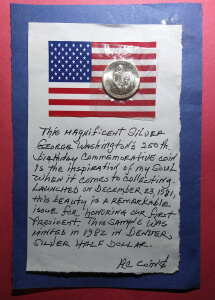 This magnificent silver
George Washington's 250th
birthday commemorative coin
is the inspiration of my soul
when it comes to collecting.
Launched on December 23, 1981,
this beauty is a remarkable
issue for honoring our first
President. This sample was
minted in 1982 in Denver,
silver half dollar.
RC Coins